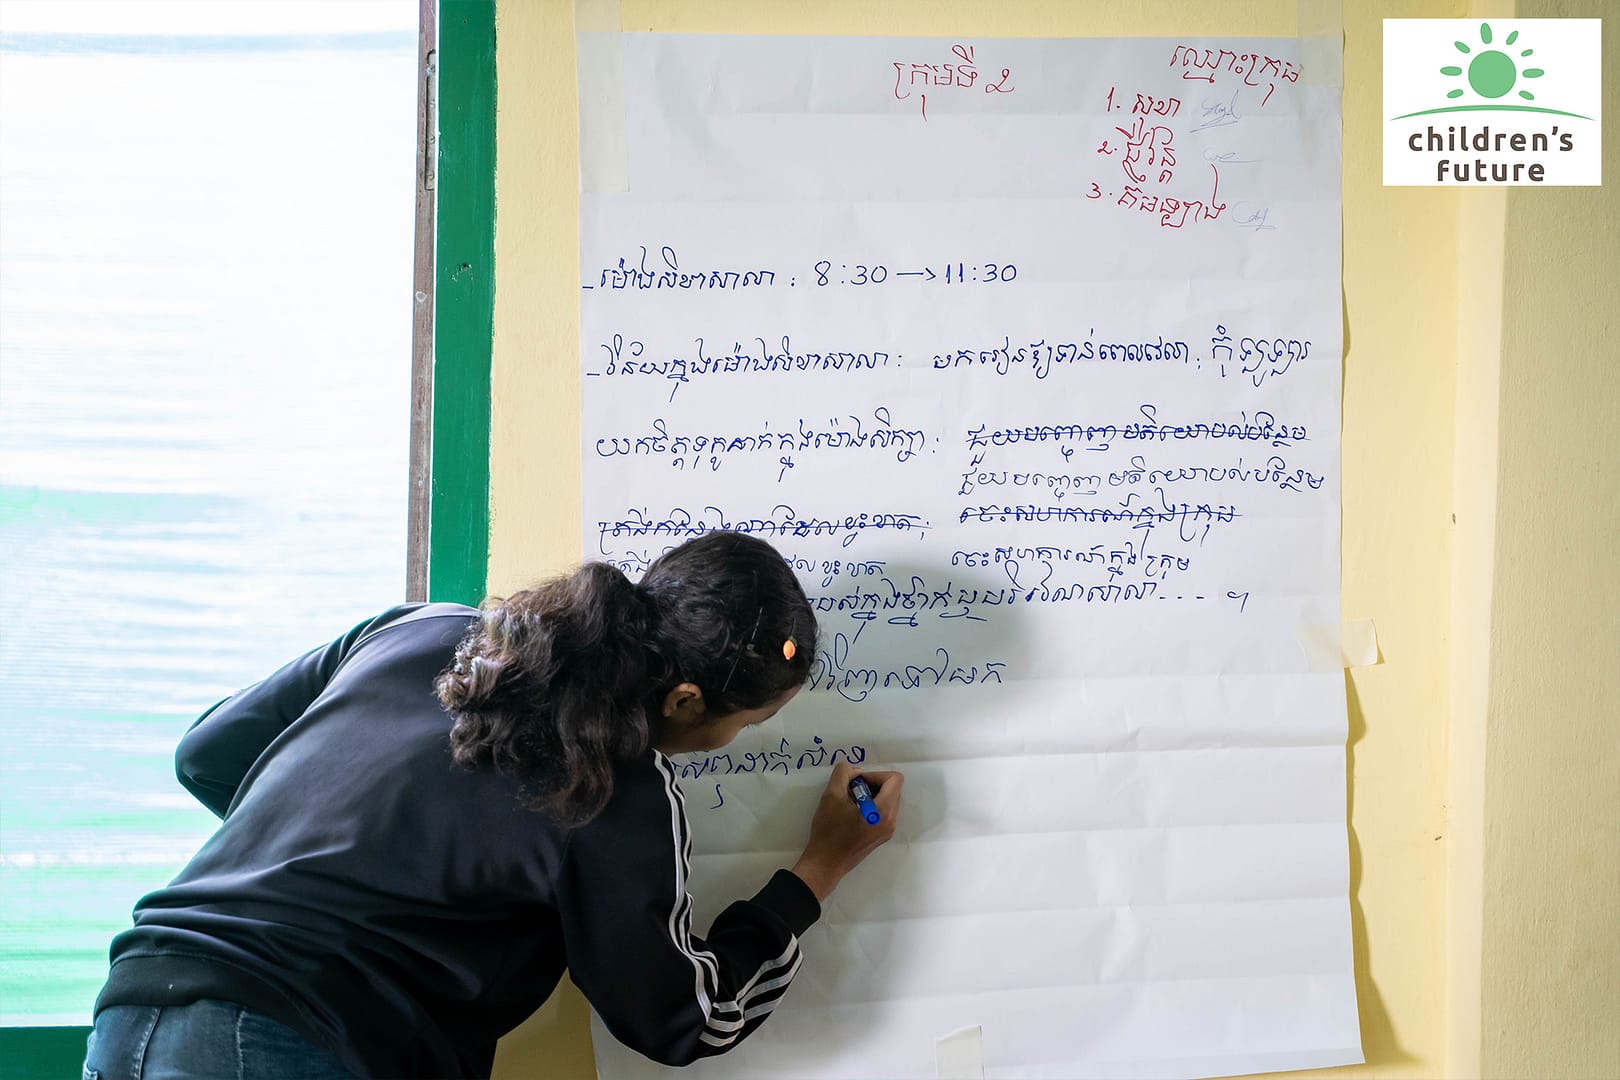 ក្រុមទី ២
ឈ្មោះក្រុម
1. សុខា
២.
3. គឹមឡាង
children's
future
- ម៉ោងសិខាសាលា : 8:30 → 11:30
- វិន័យក្នុងម៉ោងសិខាសាលា : មករៀនឱ្យទាន់ពេលវេលា, កុំឡូឡា
យកចិត្តទុកដាក់ក្នុងម៉ោងសិក្សា : ជួយបញ្ចេញមតិយោបល់បន្ថែម
ជួយបញ្ចេញមតិយោបល់បន្ថែម
ត្រង់កន្លែងណាដែលខ្វះខាត : ចេះសហការណ៍ក្នុងក្រុម
ដែលខ្វះខាត ចេះសហការណ៍ក្នុងក្រុម
ក្នុងថ្នាក់ ឬបរិវេណសាលា . . . ។
ទៅមក
ដាក់សំ